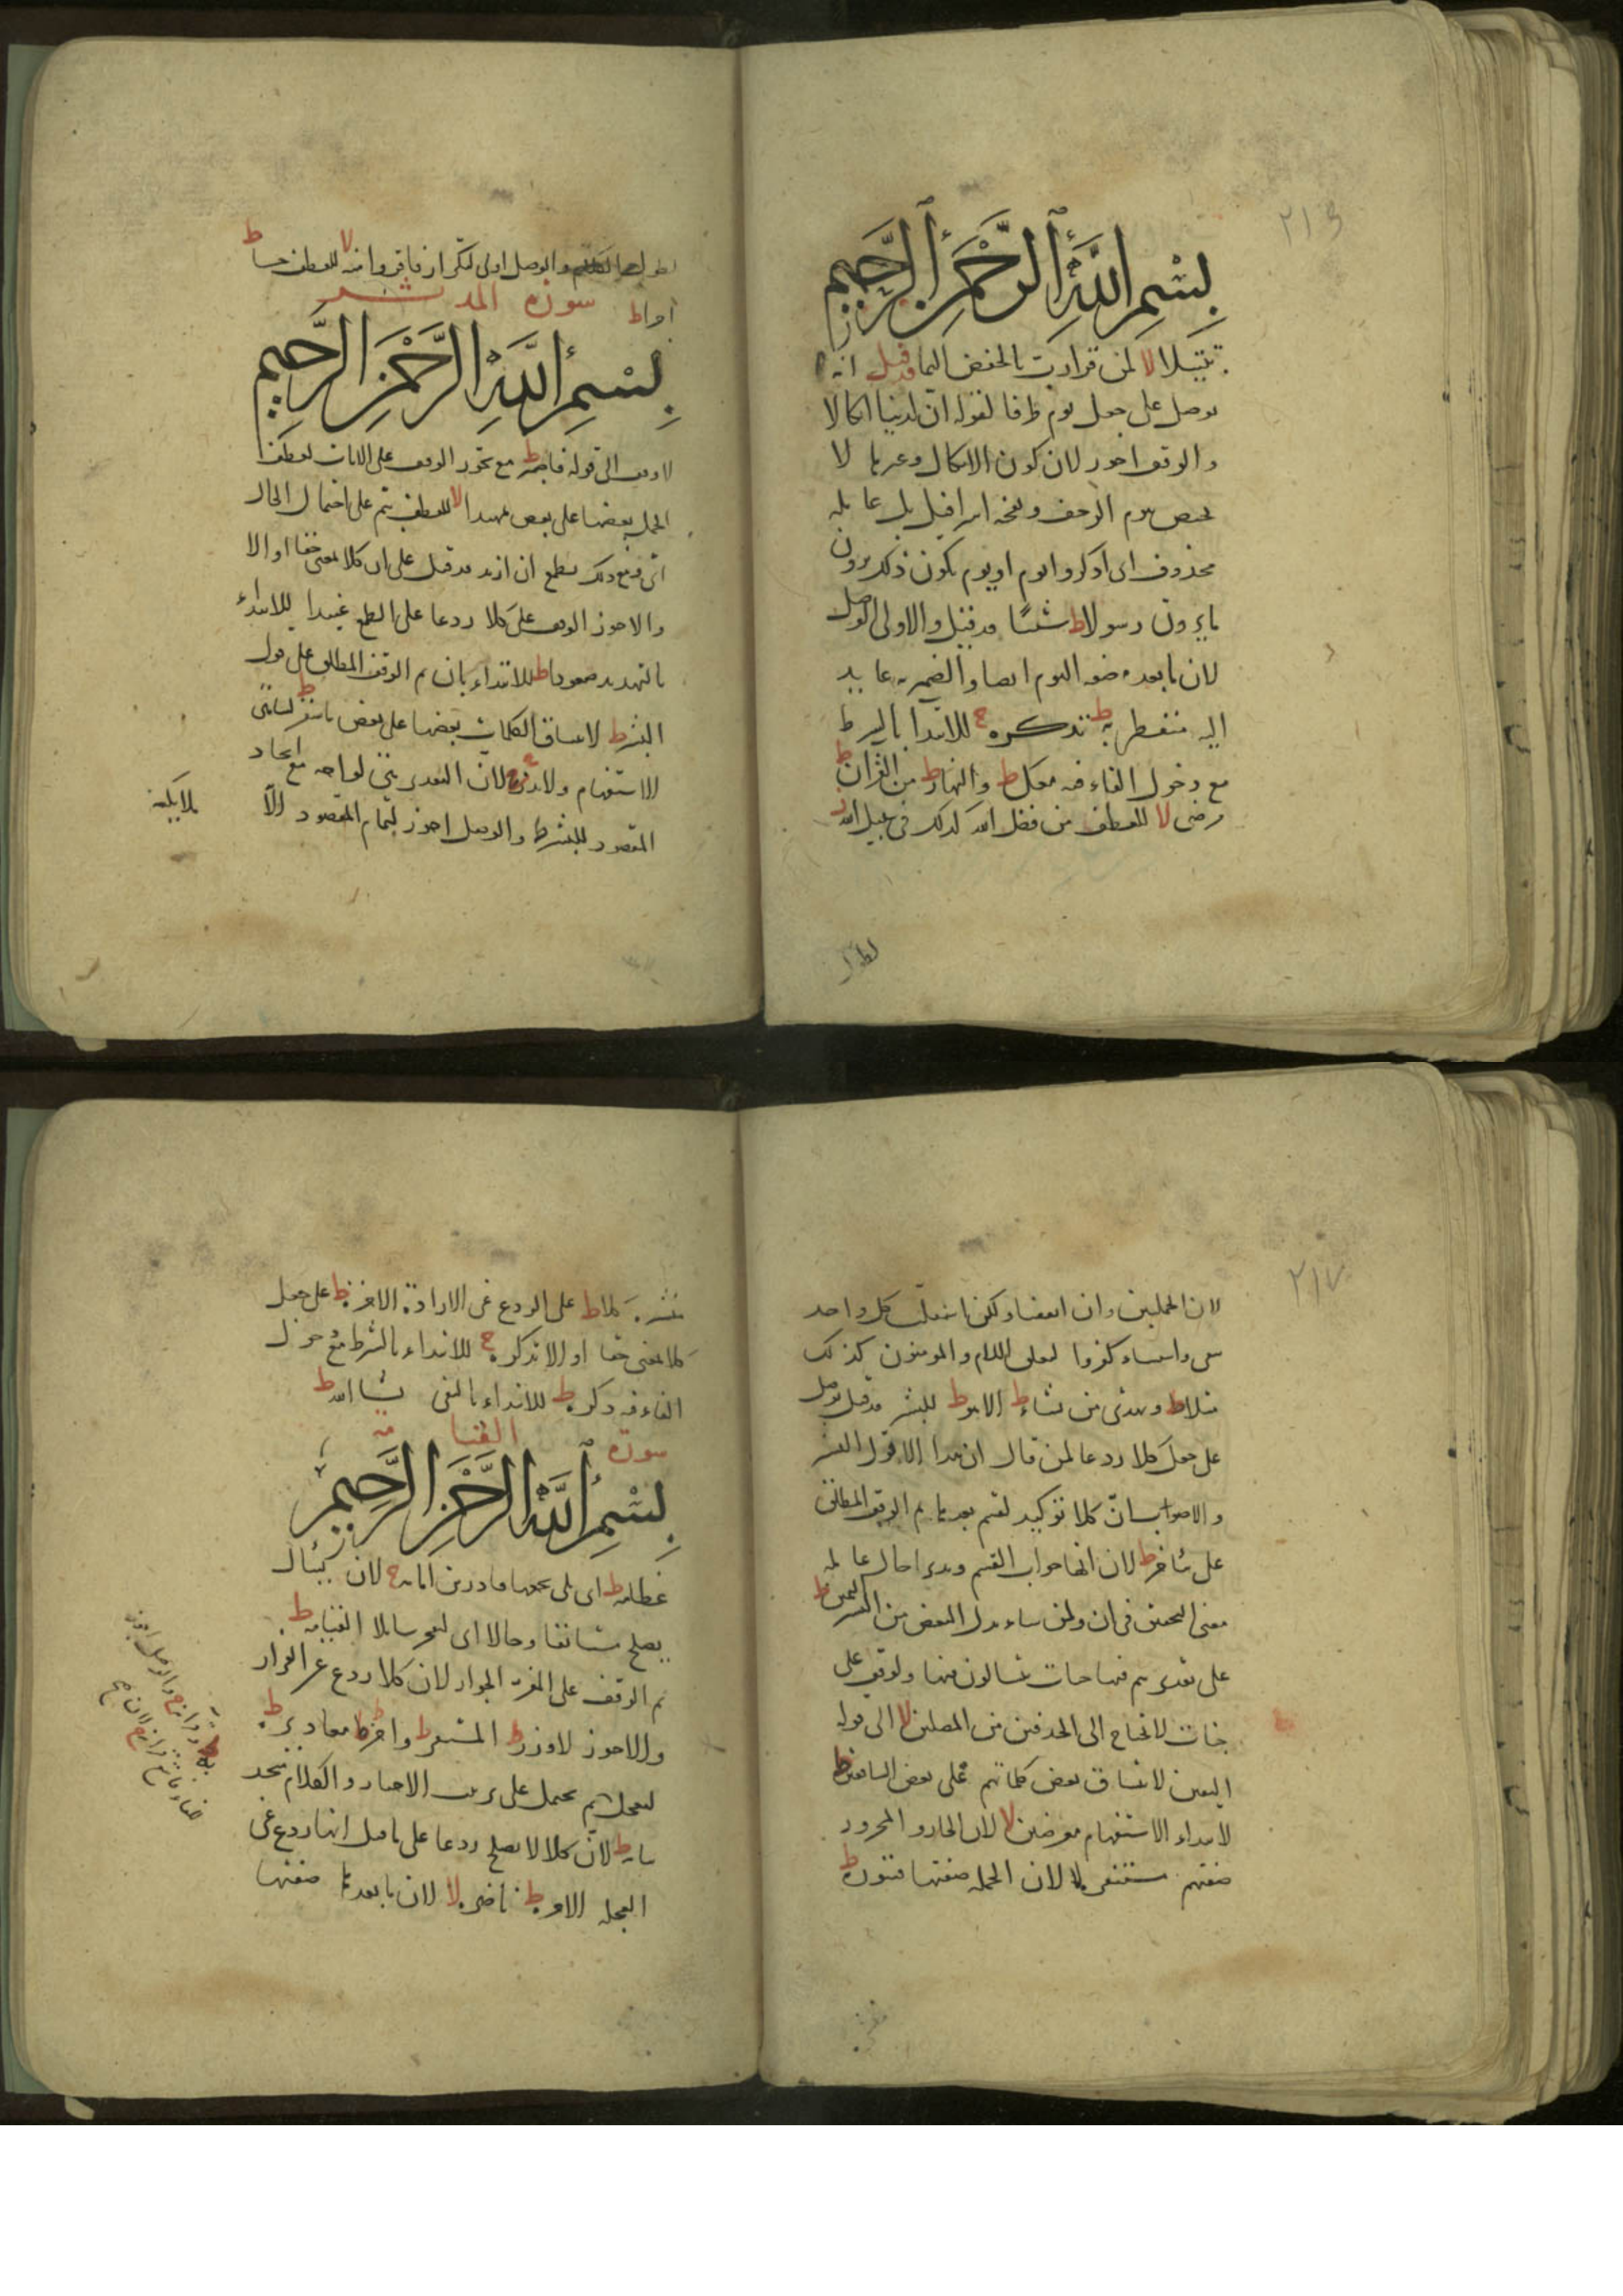 ٢١٦
بِسْمِ اللَّهِ الرَّحْمَنِ الرَّحِيمِ
تبتيلا لا لمن قرا رب بالخفض اليما قد قيل انه
يوصل على جعل يوم ظرفا لقوله ان لدينا انكالا
والوقف اجوز لان كون الانكال وغيرها لا
يختص بيوم الرجف ونفخه اسرافيل بل عامله
محذوف اى اذكروا يوم او يوم يكون ذلك ترون
ما يرون رسولا ط شيبا قد قيل والاولى الوصل
لان ما بعده صفه اليوم ايضا والضمير عايد
اليه منفطر به ط تذكره ج للابتدا بالشرط
مع دخول الفاء فيه معك ط والنهار ط من القرآن ط
مرضى لا للعطف من فضل الله كذلك فى سبيل الله
والوصل اولى لتكرار فاقروا منه لا للعطف حسنا ط
اجرا ط سورة المدثر
بِسْمِ اللَّهِ الرَّحْمَنِ الرَّحِيمِ
لا وقف الى قوله فاصبر ط مع تجوز الوقف على الايات لعطف
الجمل بعضها على بعض تمهيدا لا للعطف ثم على احتمال الحال
يطمع ان ازيد قد قيل على ان كلا بمعنى حقا او الا
والاجوز الوقف على كلا ردعا على الطمع عنيدا للابتداء
بالتهديد صعودا ط للابتداء بان ثم الوقف المطلق على قول
البشر ط لاتساق الكلمات بعضها على بعض ما سقر ط لتناهى
الاستفهام ولا تذر ج لان التقدير هى لواحه مع اتحاد
المقصود للبشر ط والوصل اجوز لتمام المقصود الا
ملايكه
٢١٧
لان الجملتين وان اتفقتا ولكن ما تتعلق كل واحد
كفروا لتعلق اللام والمومنون كذلك
مثلا ط ويهدى من يشاء ط الا هو ط للبشر قد قيل يوصل
على جعل كلا ردعا لمن قال ان هذا الا قول البشر
والاصوب ان كلا توكيد لقسم بعدها ثم الوقف المطلق
على يتاخر ط لان انها جواب القسم ونذيرا حال عامله
معنى ولمن شاء بدل البعض من البشر اليمين ط
على تقدير هم فى جنات يتسالون فيها ولو وقف على
جنات لا يحتاج الى الحذفين من المصلين لا الى قوله
اليقين لاتساق بعض كلماتهم على بعض الشافعين ط
لابتداء الاستفهام معرضين لا لان الجار والمجرور
صفتهم مستنفره لا لان الجمله صفتها قسورة ط
منشره كلا ط على الردع عن الارادة الاخره ط على جعل
كلا بمعنى حقا او الا تذكره ج للابتداء بالشرط مع دخول
الفاء فيه ذكره ط للابتداء بالنفى يشا الله ط
سورة القيامة
بِسْمِ اللَّهِ الرَّحْمَنِ الرَّحِيمِ
عظامه ط اى بلى نجمعها قادرين امامه ج لان يسأل
يصلح مستانفا وحالا اى ليفجر سايلا القيامه ط
ثم الوقف على المفر الجواز لان كلا ردع عن الفرار
والاجوز لا وزر ط المستقر ط واخر ط معاذيره ط
لتعجل به ثم يحمل على ترتيب الاخبار والكلام متحد
بيانه ط لان كلا لا يصلح ردعا على ما قبل انها ردع عن
العجله الاخره ط ناضره لا لان ما بعدها صفتها